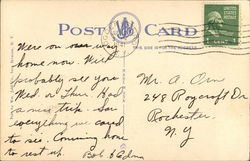 POST CARD
THIS SIDE IS FOR THE ADDRESS
Were on our way
home now. Will
probably see you
Wed. or Thur. Had
a nice trip. Saw
everything we cared
to see. Coming home
to rest up.
Bob & Edna
Mr. A. Orn
248 Roycroft Dr
Rochester
N. Y